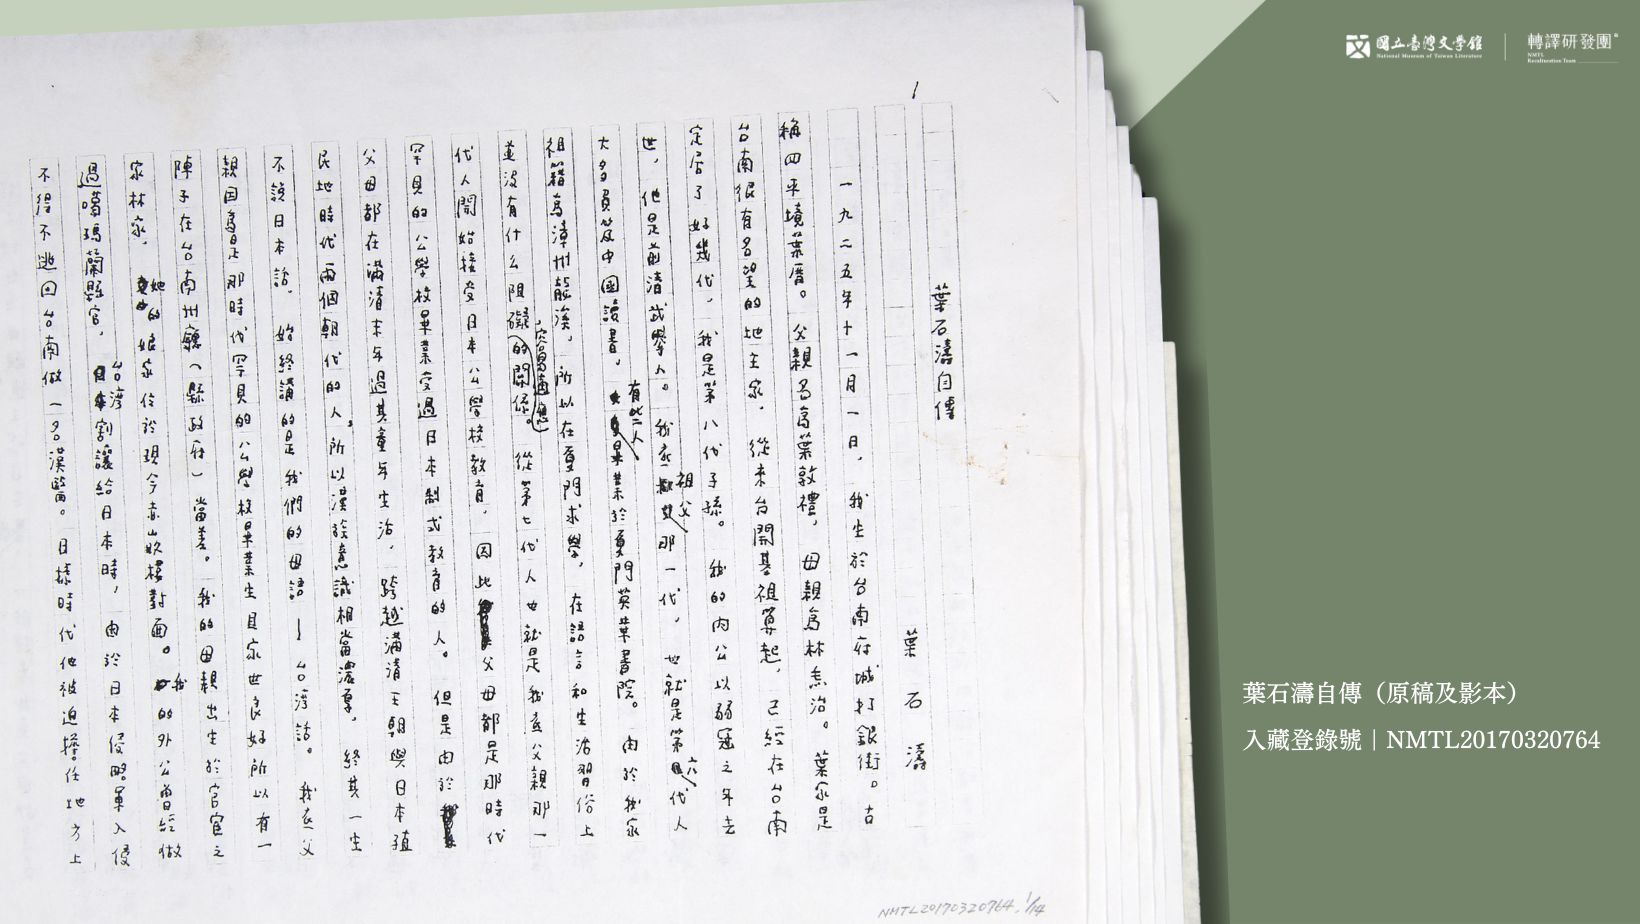 1
葉石濤自傳
葉石濤
一九二五年十一月一日，我生於台南府城打銀街。古
稱四平境葉厝。父親名為葉敦禮，母親為林焄治。葉家是
台南很有名望的地主家，從來台開基祖算起，已經在台南
定居了好幾代，我是第八代子孫。我的內公以弱冠之年去
世，他是前清武舉人。我底祖父那一代，也就是第六代人
大多負笈中國讀書。有些人畢業於廈門英華書院。由於我家
祖籍為漳州龍溪，所以在廈門求學，在語言和生活習俗上
並沒有什么阻礙，容易適應的關係。從第七代人也就是我底父親那一
代人開始接受日本公學校教育，因此父母都是那時代
罕見的公學校畢業受過日本制式教育的人。但是由於
父母都在滿清末年過其童年生活，跨越滿清王朝與日本殖
民地時代兩個朝代的人，所以漢族意識相當濃厚，終其一生
不說日本話，始終講的是我們的母語—台灣話。我底父
親因為是那時代罕見的公學校畢業生且家世良好所以有一
陣子在台南州廳（縣政府）當差。我的母親出生於官宦之
家林家，她的娘家位於現今赤崁樓對面。我的外公曾經做
過噶瑪蘭縣官，台灣割讓給日本時，由於日本侵略軍入侵
不得不逃回台南做一名漢醫。日據時代他被迫擔任地方上
NMTL20170320764. 1/14
國立臺灣文學館
National Museum of Taiwan Literature
轉譯研發團
NMTL
Reculturation Team
葉石濤自傳（原稿及影本）
入藏登錄號｜NMTL20170320764